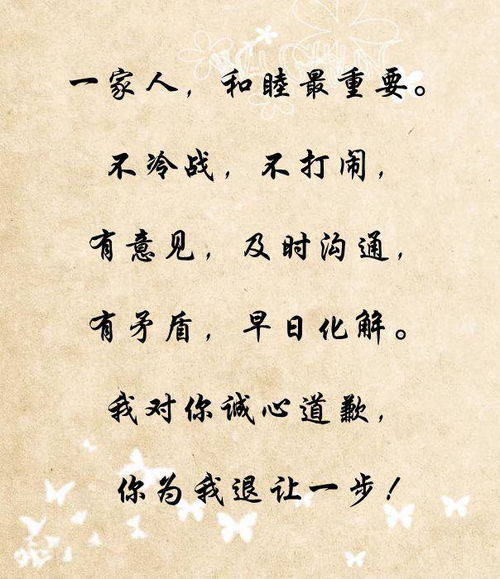 一家人，和睦最重要。
不冷战，不打闹，
有意见，及时沟通，
有矛盾，早日化解。
我对你诚心道歉，
你为我退让一步！